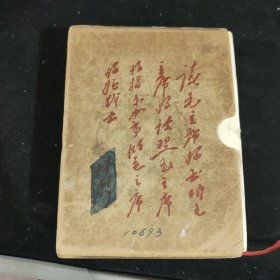 读毛主席的书听毛
主席的话照毛主席
的指示办事做毛主席
的好战士
10693